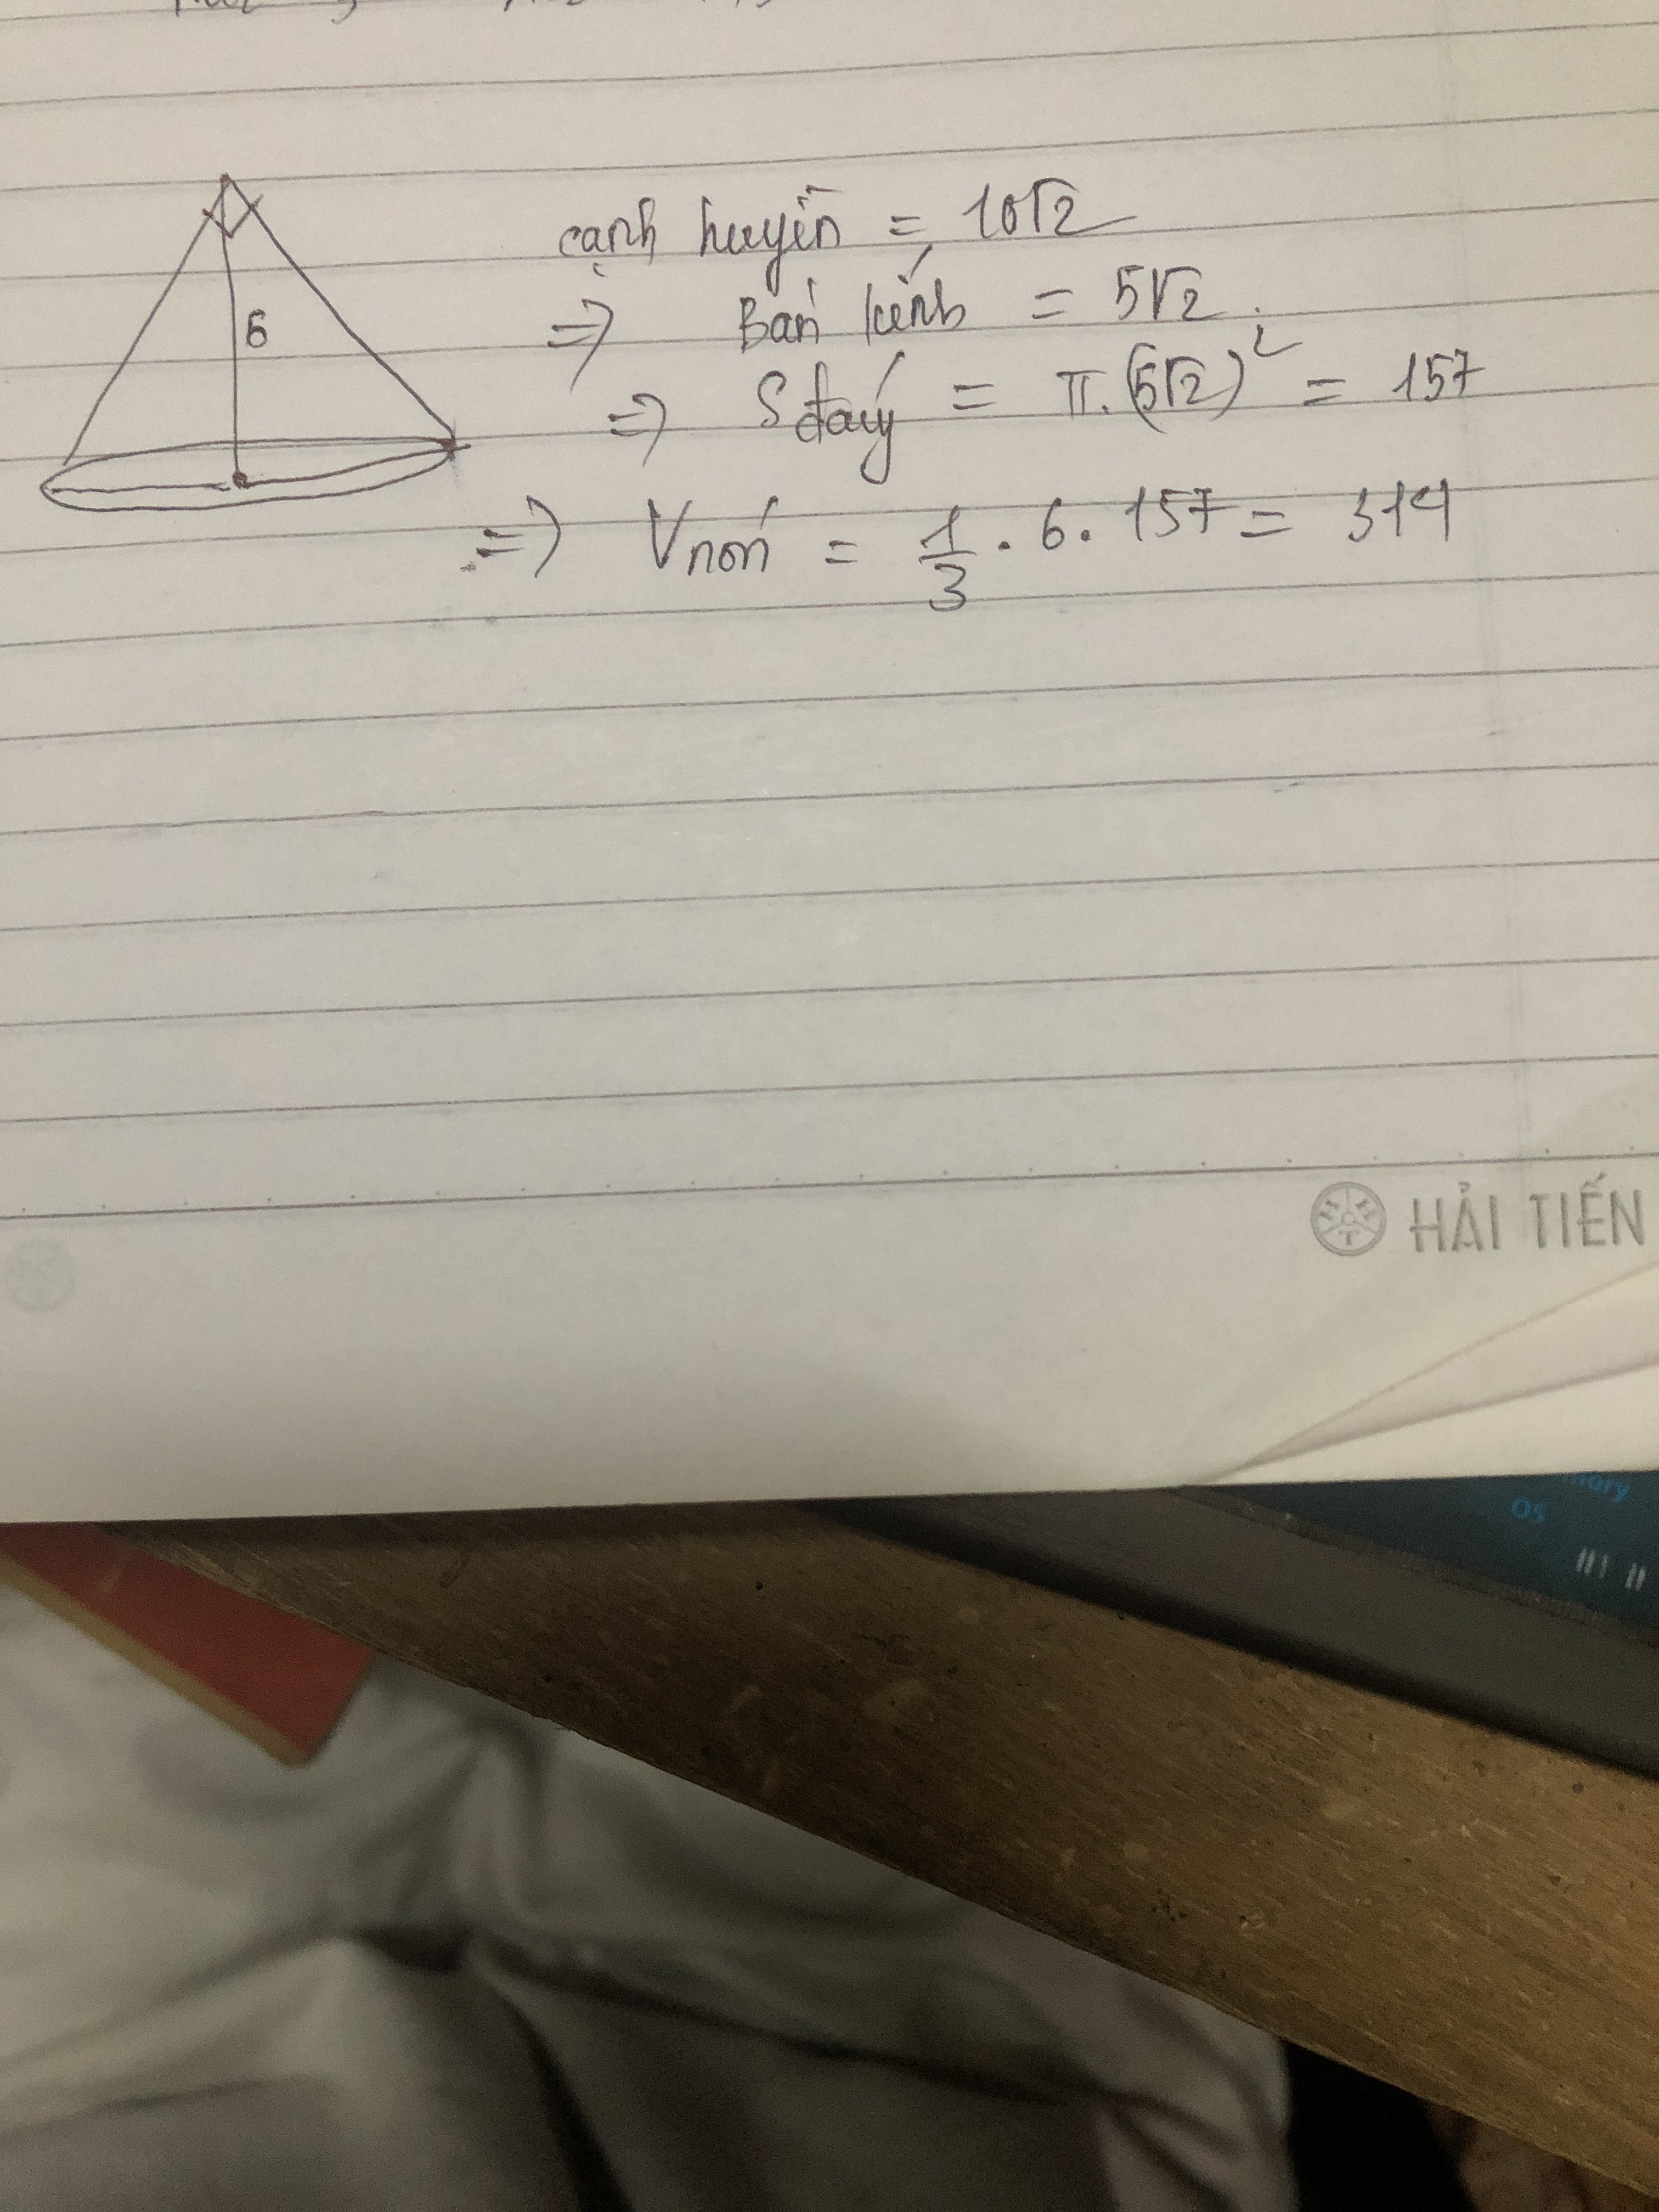 6
cạnh huyền = 10√2
=> Bán kính = 5√2.
=> Sđáy = π.(5√2)² = 157
=> Vnón = 1/3 . 6 . 157 = 314
HẢI TIẾN
OS